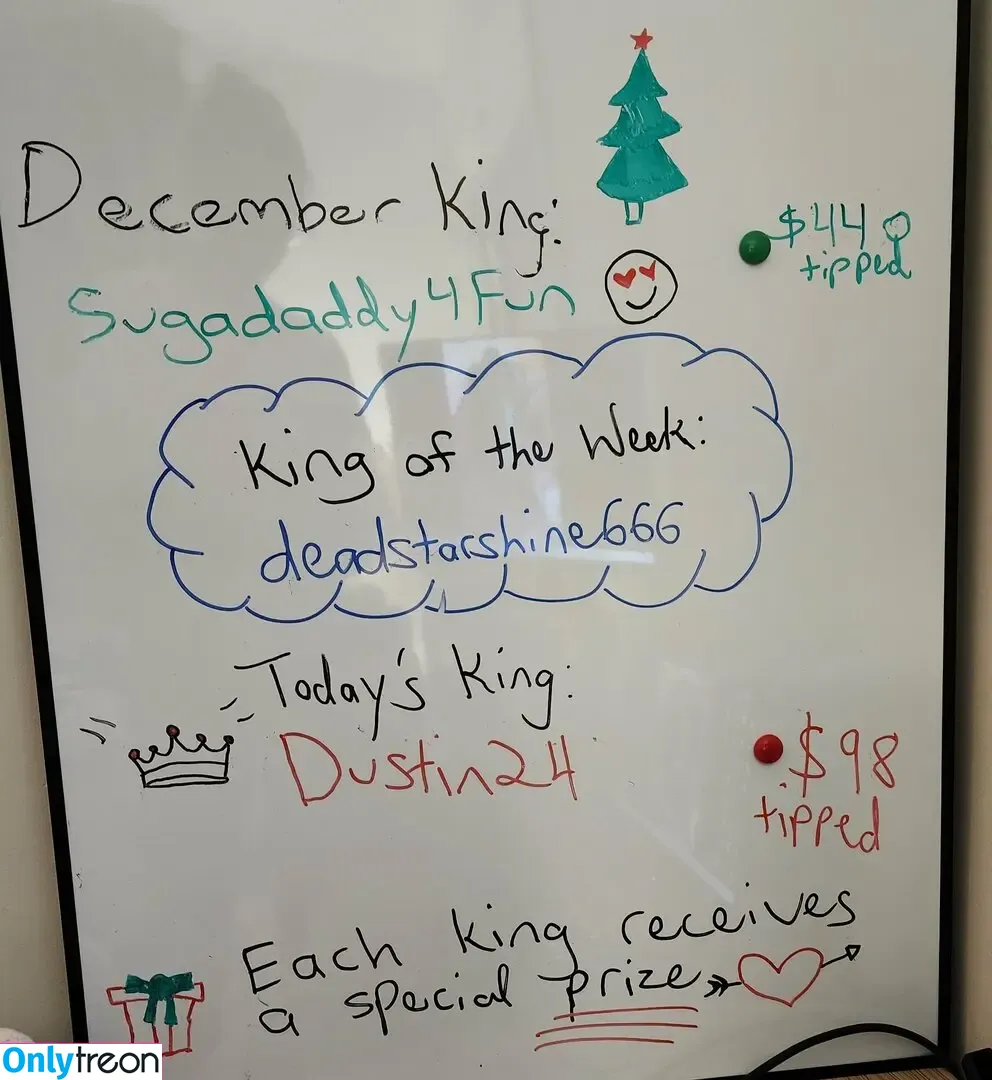 December King:
$449
tipped
Sugadaddy4Fun
King of the Week:
deadstarshine666
Today's King:
Dustin24
$98
tipped
Each king receives
a special prize
Onlytreon